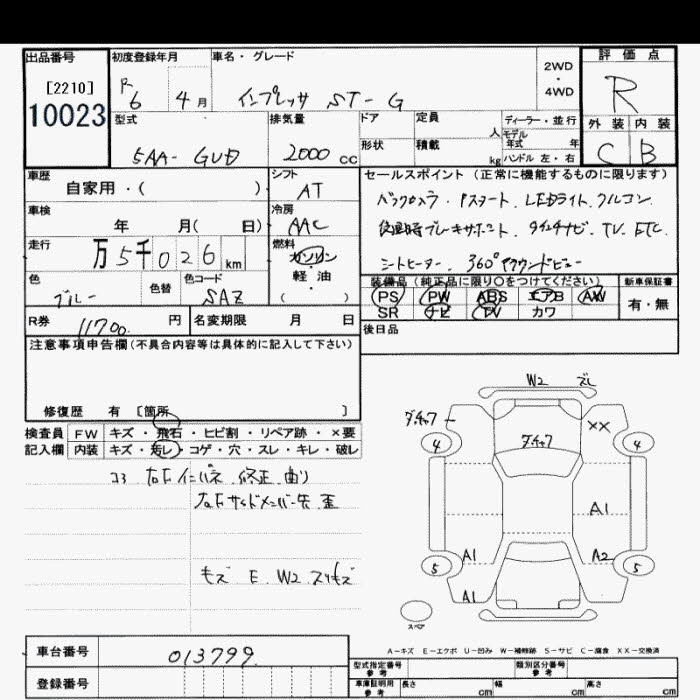 出品番号 初度登録年月 車名・グレード 評価点
[2210] R 2WD
10023 6 4月 インプレッサ ST-G ・ R
4WD
型式 排気量 ドア 定員 人 ディーラー・並行 外装 内装
モデル年式 年
5AA-GUD 2000cc 形状 積載 kg ハンドル 左・右 C B
車歴 シフト セールスポイント(正常に機能するものに限ります)
自家用・( ) AT バックカメラ.Pスタート.LEDライト.クルコン.
車検 冷房
年 月( 日) AAC 後退時ブレーキサポート.ナビ.TV.ETC.
走行 燃料
万5千026km ガソリン シートヒーター.360°アラウンドビュー
色 色替 色コード 軽・油 装備品(純正品に限り○をつけてください) 新車保証書
ブルー SAZ ( ) PS PW ABS エアB AW 有・無
SR ナビ TV カワ
R券 11700 円 名変期限 月 日 後日品
注意事項申告欄(不具合内容等は具体的に記入して下さい)
修復歴 有 [箇所 ]
検査員 FW キズ・飛石・ヒビ割・リペア跡・×要
記入欄 内装 キズ・汚レ・コゲ・穴・スレ・キレ・破レ
コ3 右Fインパネ.修正.曲り
右Fサイドメンバー先.歪
モズ E.W2.スリキズ
W2 ズレ
ダチャフ XX
4 ダチャフ 4
A1
A1 A2
5 5
A1
スペア
A-キズ E-エクボ U-凹み W-補修跡 S-サビ C-腐食 XX-交換済
車台番号 013799
登録番号
型式指定番号 参考 類別区分番号 参考
車庫証明用 参考 長さ cm 幅 cm 高さ cm